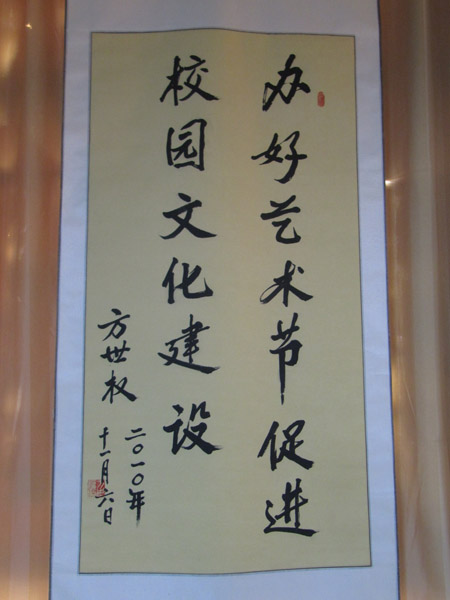 办好艺术节促进
校园文化建设
方世权
二〇一〇年
十一月六日